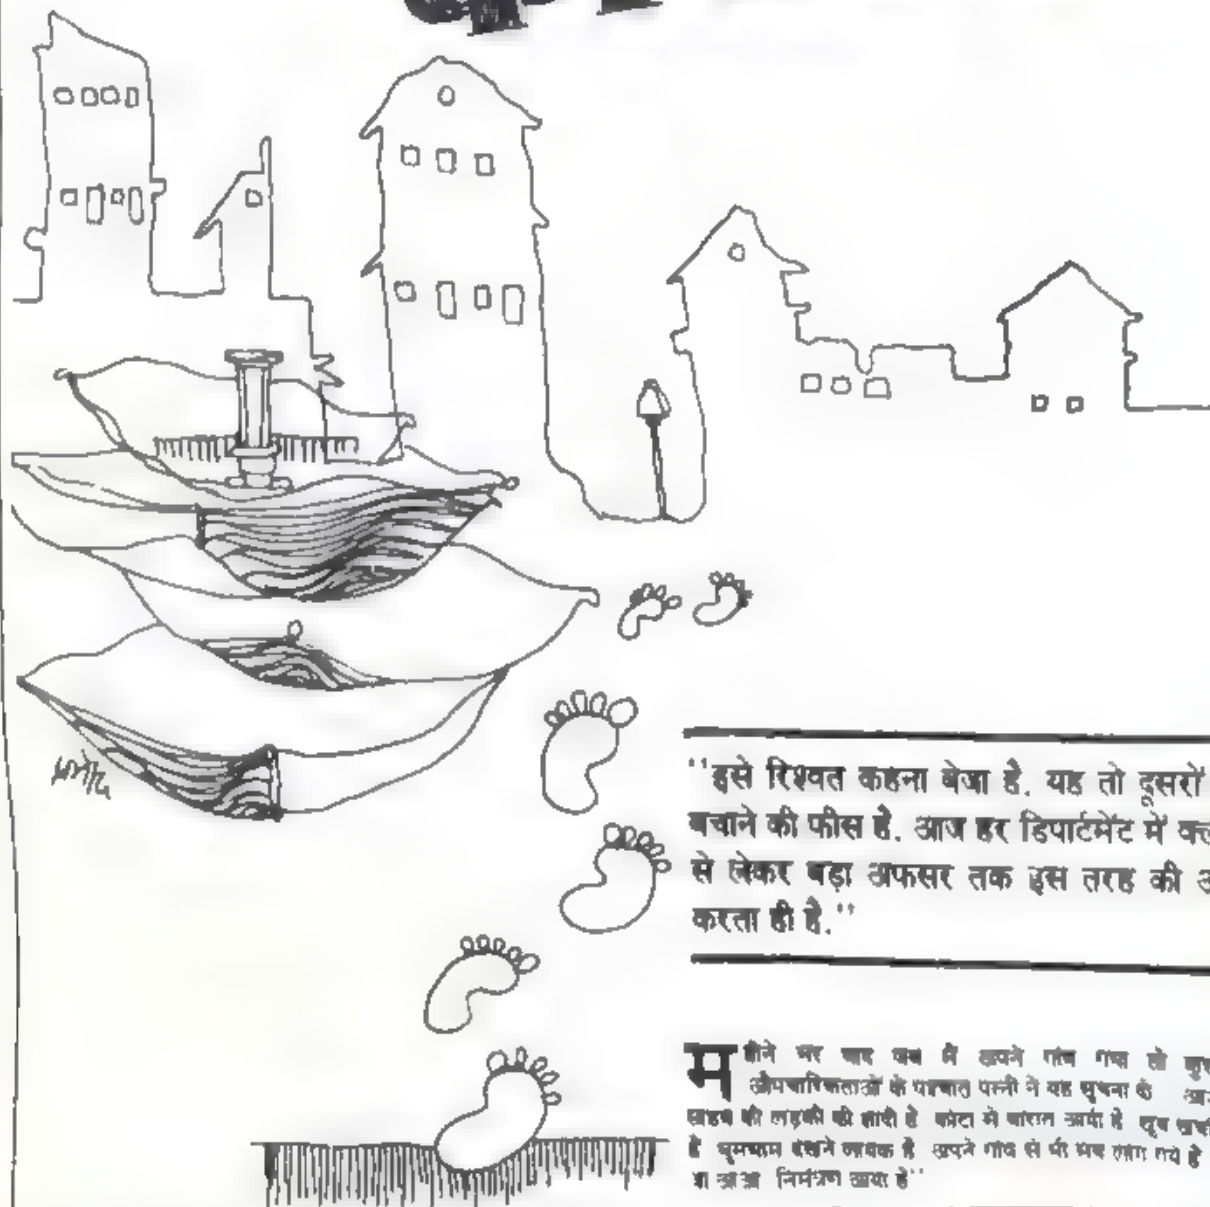 ''इसे रिश्वत कहना बेजा है. यह तो दूसरों
बचाने की फीस है. आज हर डिपार्टमेंट में
से लेकर बड़ा अफसर तक इस तरह की
करता ही है.''
महीने भर बाद जब मैं अपने गांव गया तो
औपचारिकताओं के पश्चात पत्नी ने यह सूचना दी
साहब की लड़की की शादी है कोटा से बारात आयी है खूब
है धूमधाम देखने लायक है अपने गांव से भी सब लोग गये है
निमंत्रण आया है''